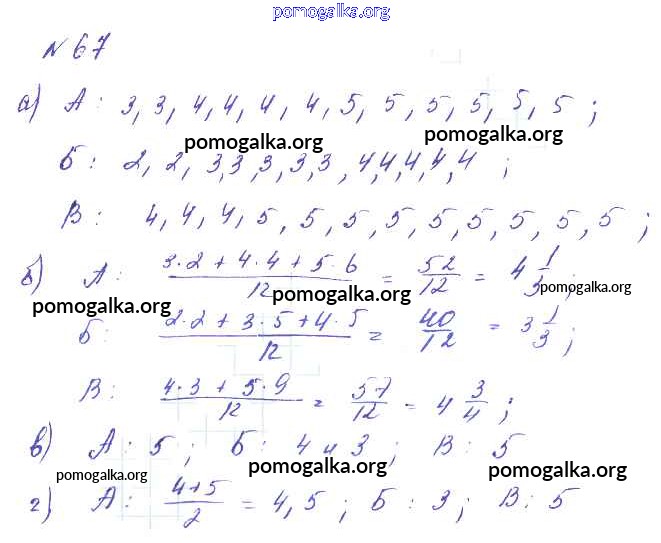 pomogalka.org
№ 67
а) А: 3, 3, 4, 4, 4, 4, 5, 5, 5, 5, 5, 5;
pomogalka.org pomogalka.org
Б: 2, 2, 3, 3, 3, 3, 3, 4, 4, 4, 4, 4;
В: 4, 4, 4, 5, 5, 5, 5, 5, 5, 5, 5, 5;
б) А: (3·2 + 4·4 + 5·6)/12 = 52/12 = 4 1/3;
pomogalka.org pomogalka.org
Б: (2·2 + 3·5 + 4·5)/12 = 40/12 = 3 1/3;
В: (4·3 + 5·9)/12 = 57/12 = 4 3/4;
в) А: 5; Б: 4 и 3; В: 5
pomogalka.org pomogalka.org pomogalka.org
г) А: (4+5)/2 = 4,5; Б: 3; В: 5